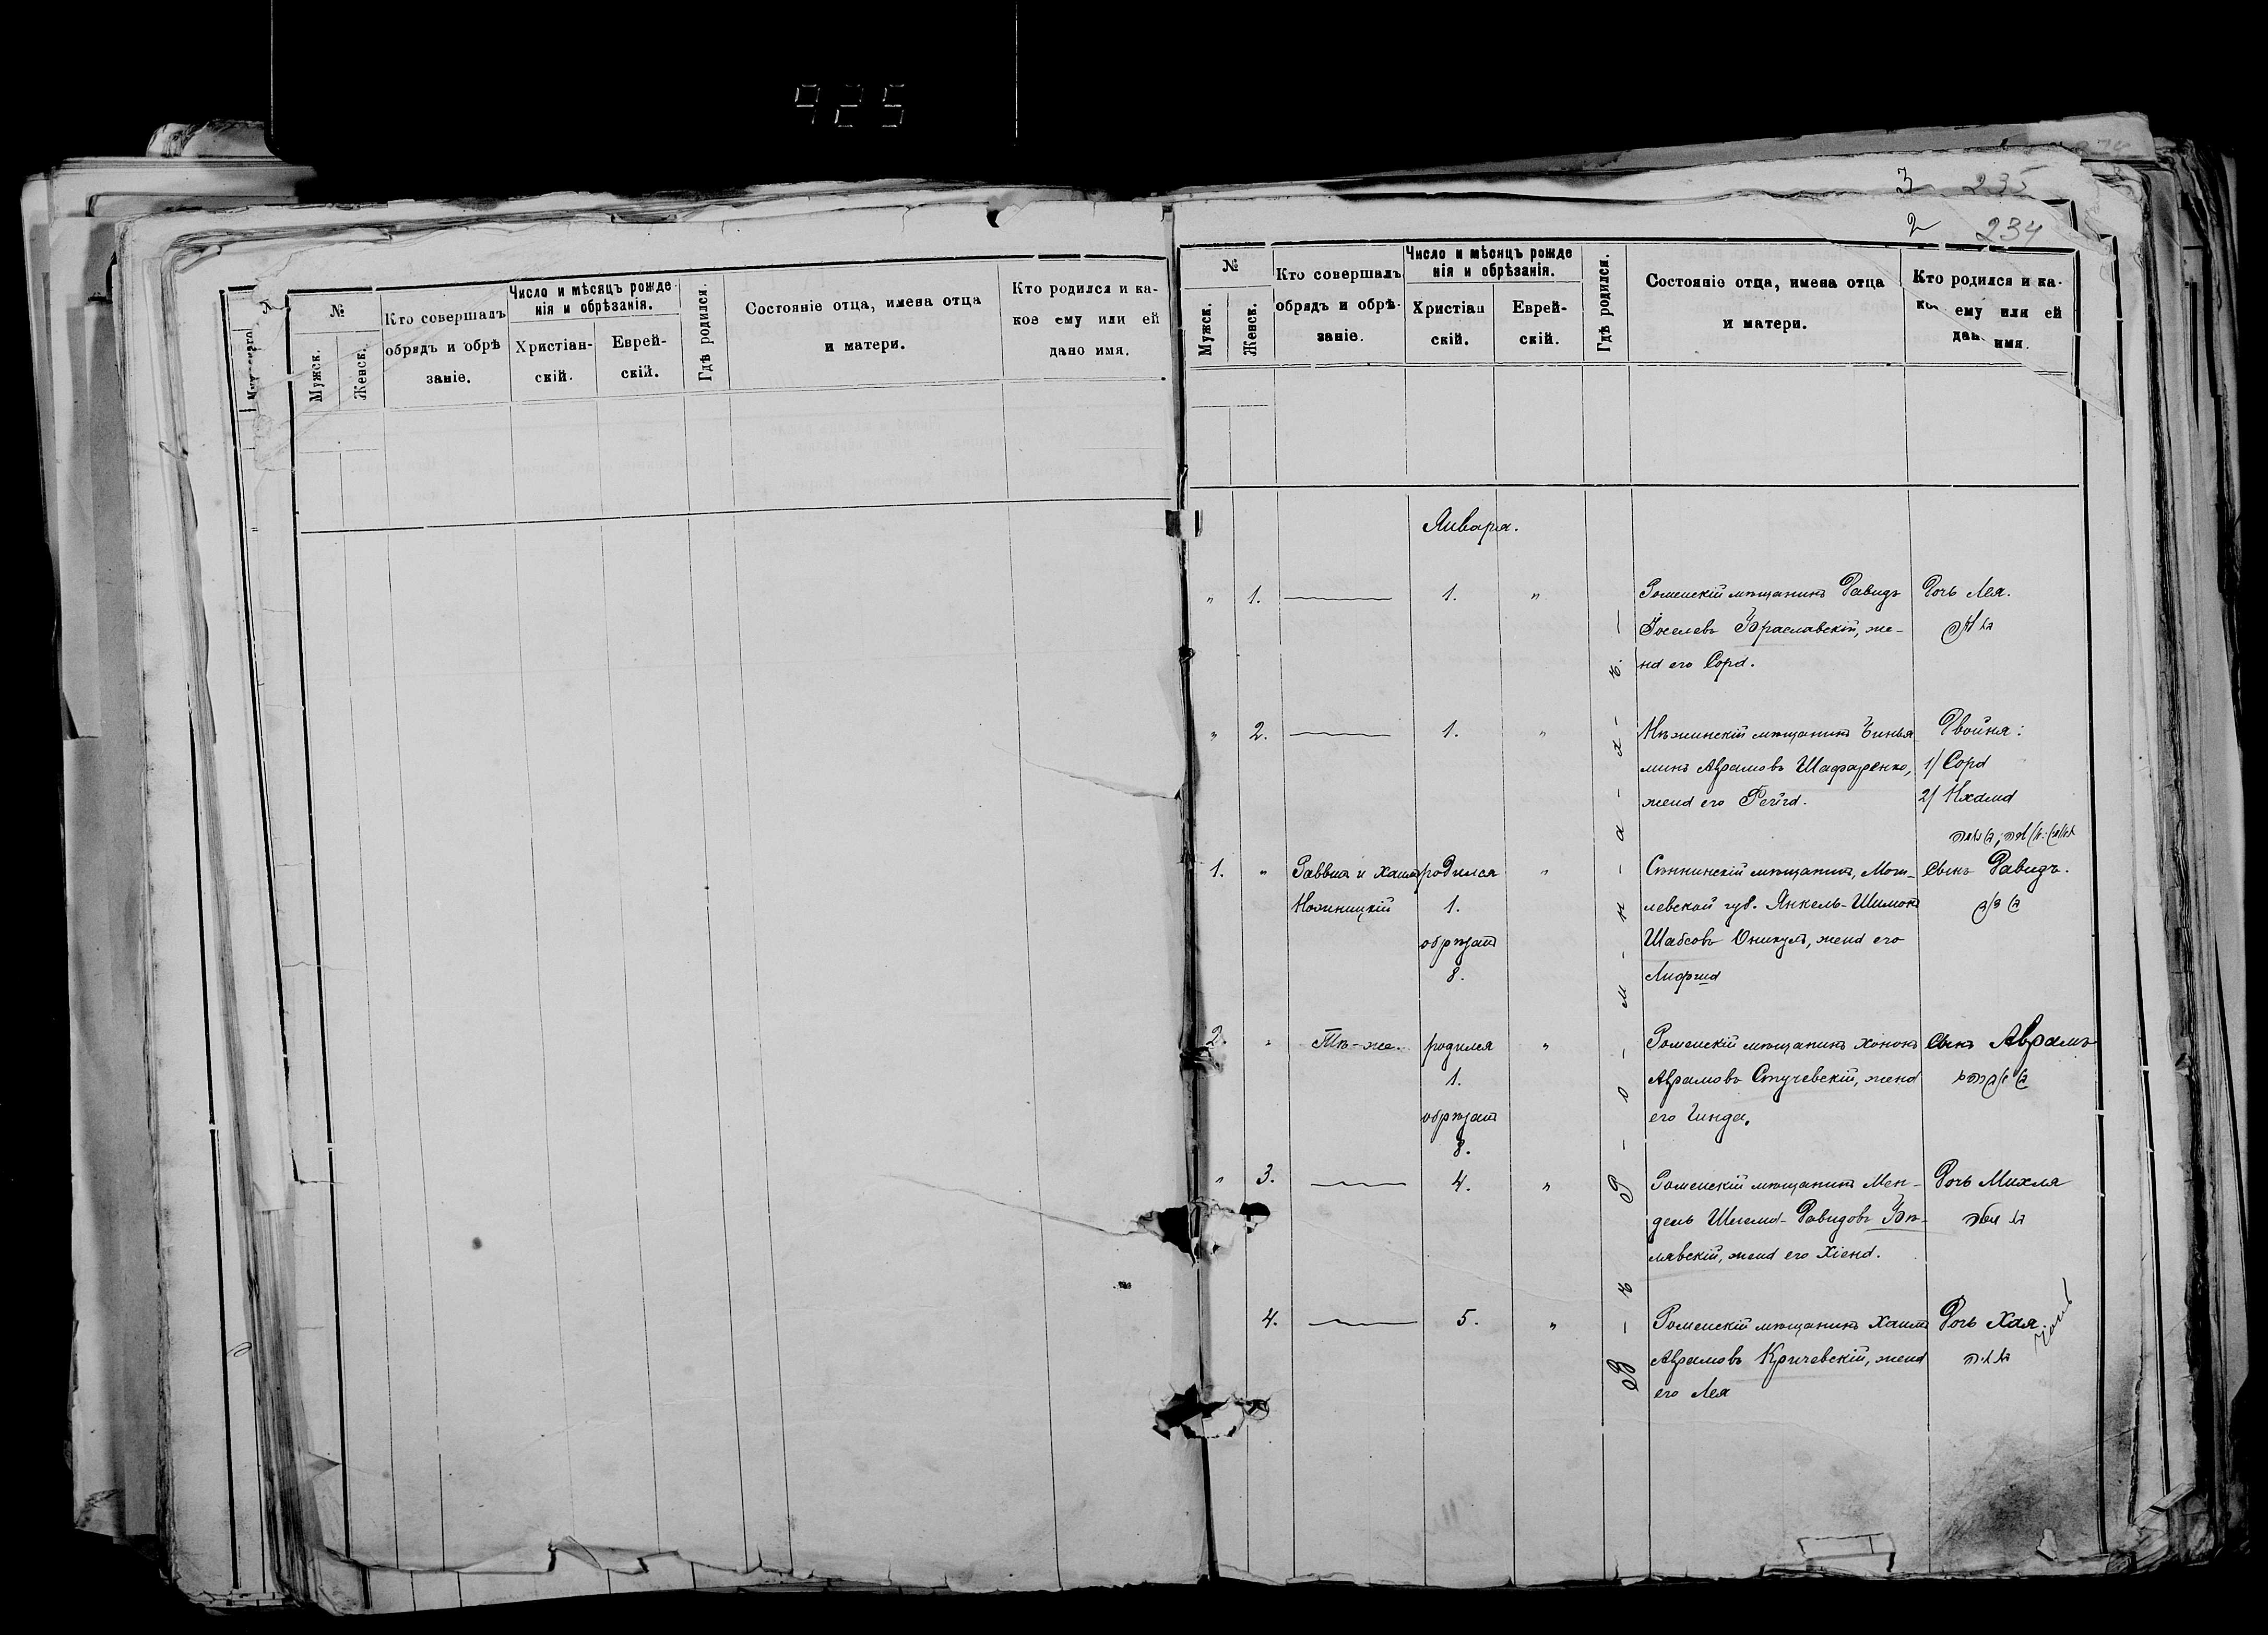 925
№
Кто совершалъ обрядъ и обрѣзаніе.
Число и мѣсяцъ рожденія и обрѣзанія.
Гдѣ родился.
Состояніе отца, имена отца и матери.
Кто родился и какое ему или ей дано имя.
Мужск.
Женск.
Христіанскій.
Еврейскій.
3 235
2 234
№
Кто совершалъ обрядъ и обрѣзаніе.
Число и мѣсяцъ рожденія и обрѣзанія.
Гдѣ родился.
Состояніе отца, имена отца и матери.
Кто родился и ка-
ему или ей
имя.
Мужск.
Женск.
Христіанскій.
Еврейскій.
Января.
Въ Ромнахъ.
" 1. 1. " Роменскій мѣщанинъ Давидъ Дочь Лея.
Іоселевъ Браславскій, же-
на его Сора.
" 2. 1. " Нѣжинскій мѣщанинъ Бинья- Двойня:
минъ Абрамовъ Шафаренко, 1/ Сора
жена его Рейза. 2/ Нхама
1. " Раввин и Хаимъ родился " Сѣннинскій мѣщанинъ, Моги- Сынъ Давидъ.
1. левской губ. Янкель-Шимонъ
обрѣзанъ Шабсовъ жена его
8.
2. " Тѣ-же. родился " Роменскій мѣщанинъ Хононъ Сынъ Абрамъ
1. Абрамовъ Стучевскій, жена
обрѣзанъ его Гинда.
8.
" 3. 4. " Роменскій мѣщанинъ Мен- Дочь Михля
дель Шлема-Давидовъ Бѣ-
лявскій, жена его Хіена.
4. 5. " Роменскій мѣщанинъ Хаимъ Дочь Хая.
Абрамовъ Кричевскій, жена
его Лея